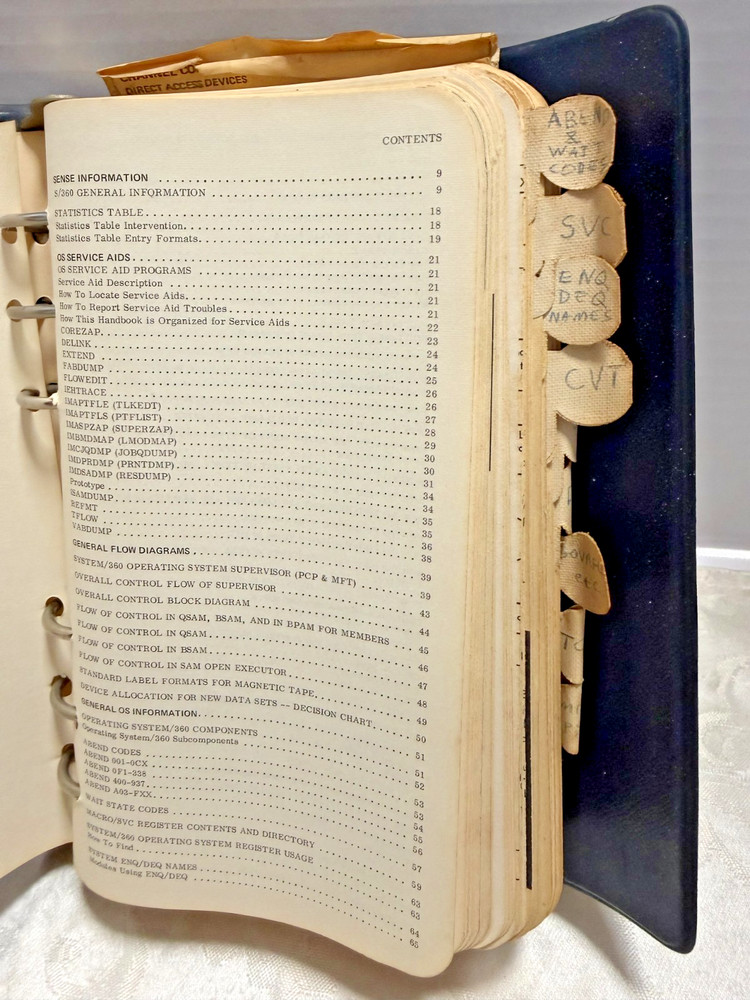 CHANNEL CO.
DIRECT ACCESS DEVICES
CONTENTS
SENSE INFORMATION 9
S/360 GENERAL INFORMATION 9
STATISTICS TABLE 18
Statistics Table Intervention 18
Statistics Table Entry Formats 19
OS SERVICE AIDS 21
OS SERVICE AID PROGRAMS 21
Service Aid Description 21
How To Locate Service Aids 21
How To Report Service Aid Troubles 21
How This Handbook is Organized for Service Aids 22
COREZAP 23
DELINK 24
EXTEND 24
FABDUMP 25
FLOWEDIT 26
IEHTRACE 26
IMAPTFLE (TLKEDT) 27
IMAPTFLS (PTFLIST) 28
IMASPZAP (SUPERZAP) 29
IMBMDMAP (LMODMAP) 30
IMCJQDMP (JOBQDUMP) 30
IMDPRDMP (PRNTDMP) 31
IMDSADMP (RESDUMP) 34
Prototype 34
ISAMDUMP 35
REFMT 35
TFLOW 36
VABDUMP 38
GENERAL FLOW DIAGRAMS 39
SYSTEM/360 OPERATING SYSTEM SUPERVISOR (PCP & MFT) 39
OVERALL CONTROL FLOW OF SUPERVISOR 43
OVERALL CONTROL BLOCK DIAGRAM 44
FLOW OF CONTROL IN QSAM, BSAM, AND IN BPAM FOR MEMBERS 45
FLOW OF CONTROL IN QSAM 46
FLOW OF CONTROL IN BSAM 47
FLOW OF CONTROL IN SAM OPEN EXECUTOR 48
STANDARD LABEL FORMATS FOR MAGNETIC TAPE 49
DEVICE ALLOCATION FOR NEW DATA SETS -- DECISION CHART 50
GENERAL OS INFORMATION 51
OPERATING SYSTEM/360 COMPONENTS 51
Operating System/360 Subcomponents 52
ABEND CODES 53
ABEND 001-0CX 53
ABEND 0F1-338 54
ABEND 400-937 55
ABEND A03-FXX 56
WAIT STATE CODES 57
MACRO/SVC REGISTER CONTENTS AND DIRECTORY 59
SYSTEM/360 OPERATING SYSTEM REGISTER USAGE 63
How To Find 63
SYSTEM ENQ/DEQ NAMES 64
Modules Using ENQ/DEQ 65
ABEND
&
WAIT
CODES
SVC
ENQ
DEQ
NAMES
CVT
etc